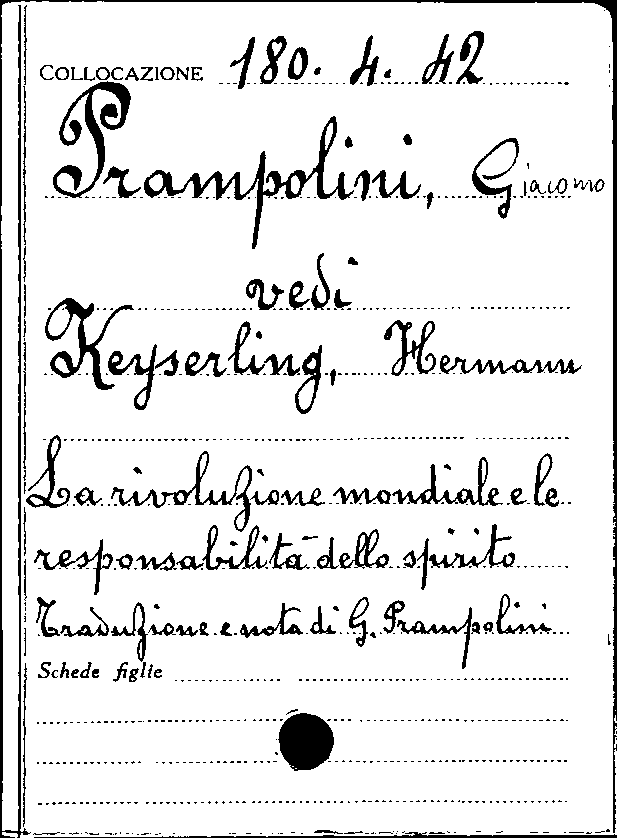 COLLOCAZIONE 180. 4. 42
Prampolini, Giacomo
vedi
Keyserling, Hermann
La rivoluzione mondiale e le
responsabilità dello spirito
Traduzione e nota di G. Prampolini
Schede figlie